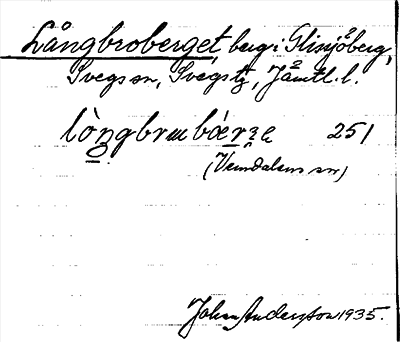 Långbroberget, berg i Glissjöberg,
Svegs sn, Svegs tg, Jämtl. l.
lòngbrɯbáerʒe 251
(Vemdalens sn)
Johan Andersson 1935.